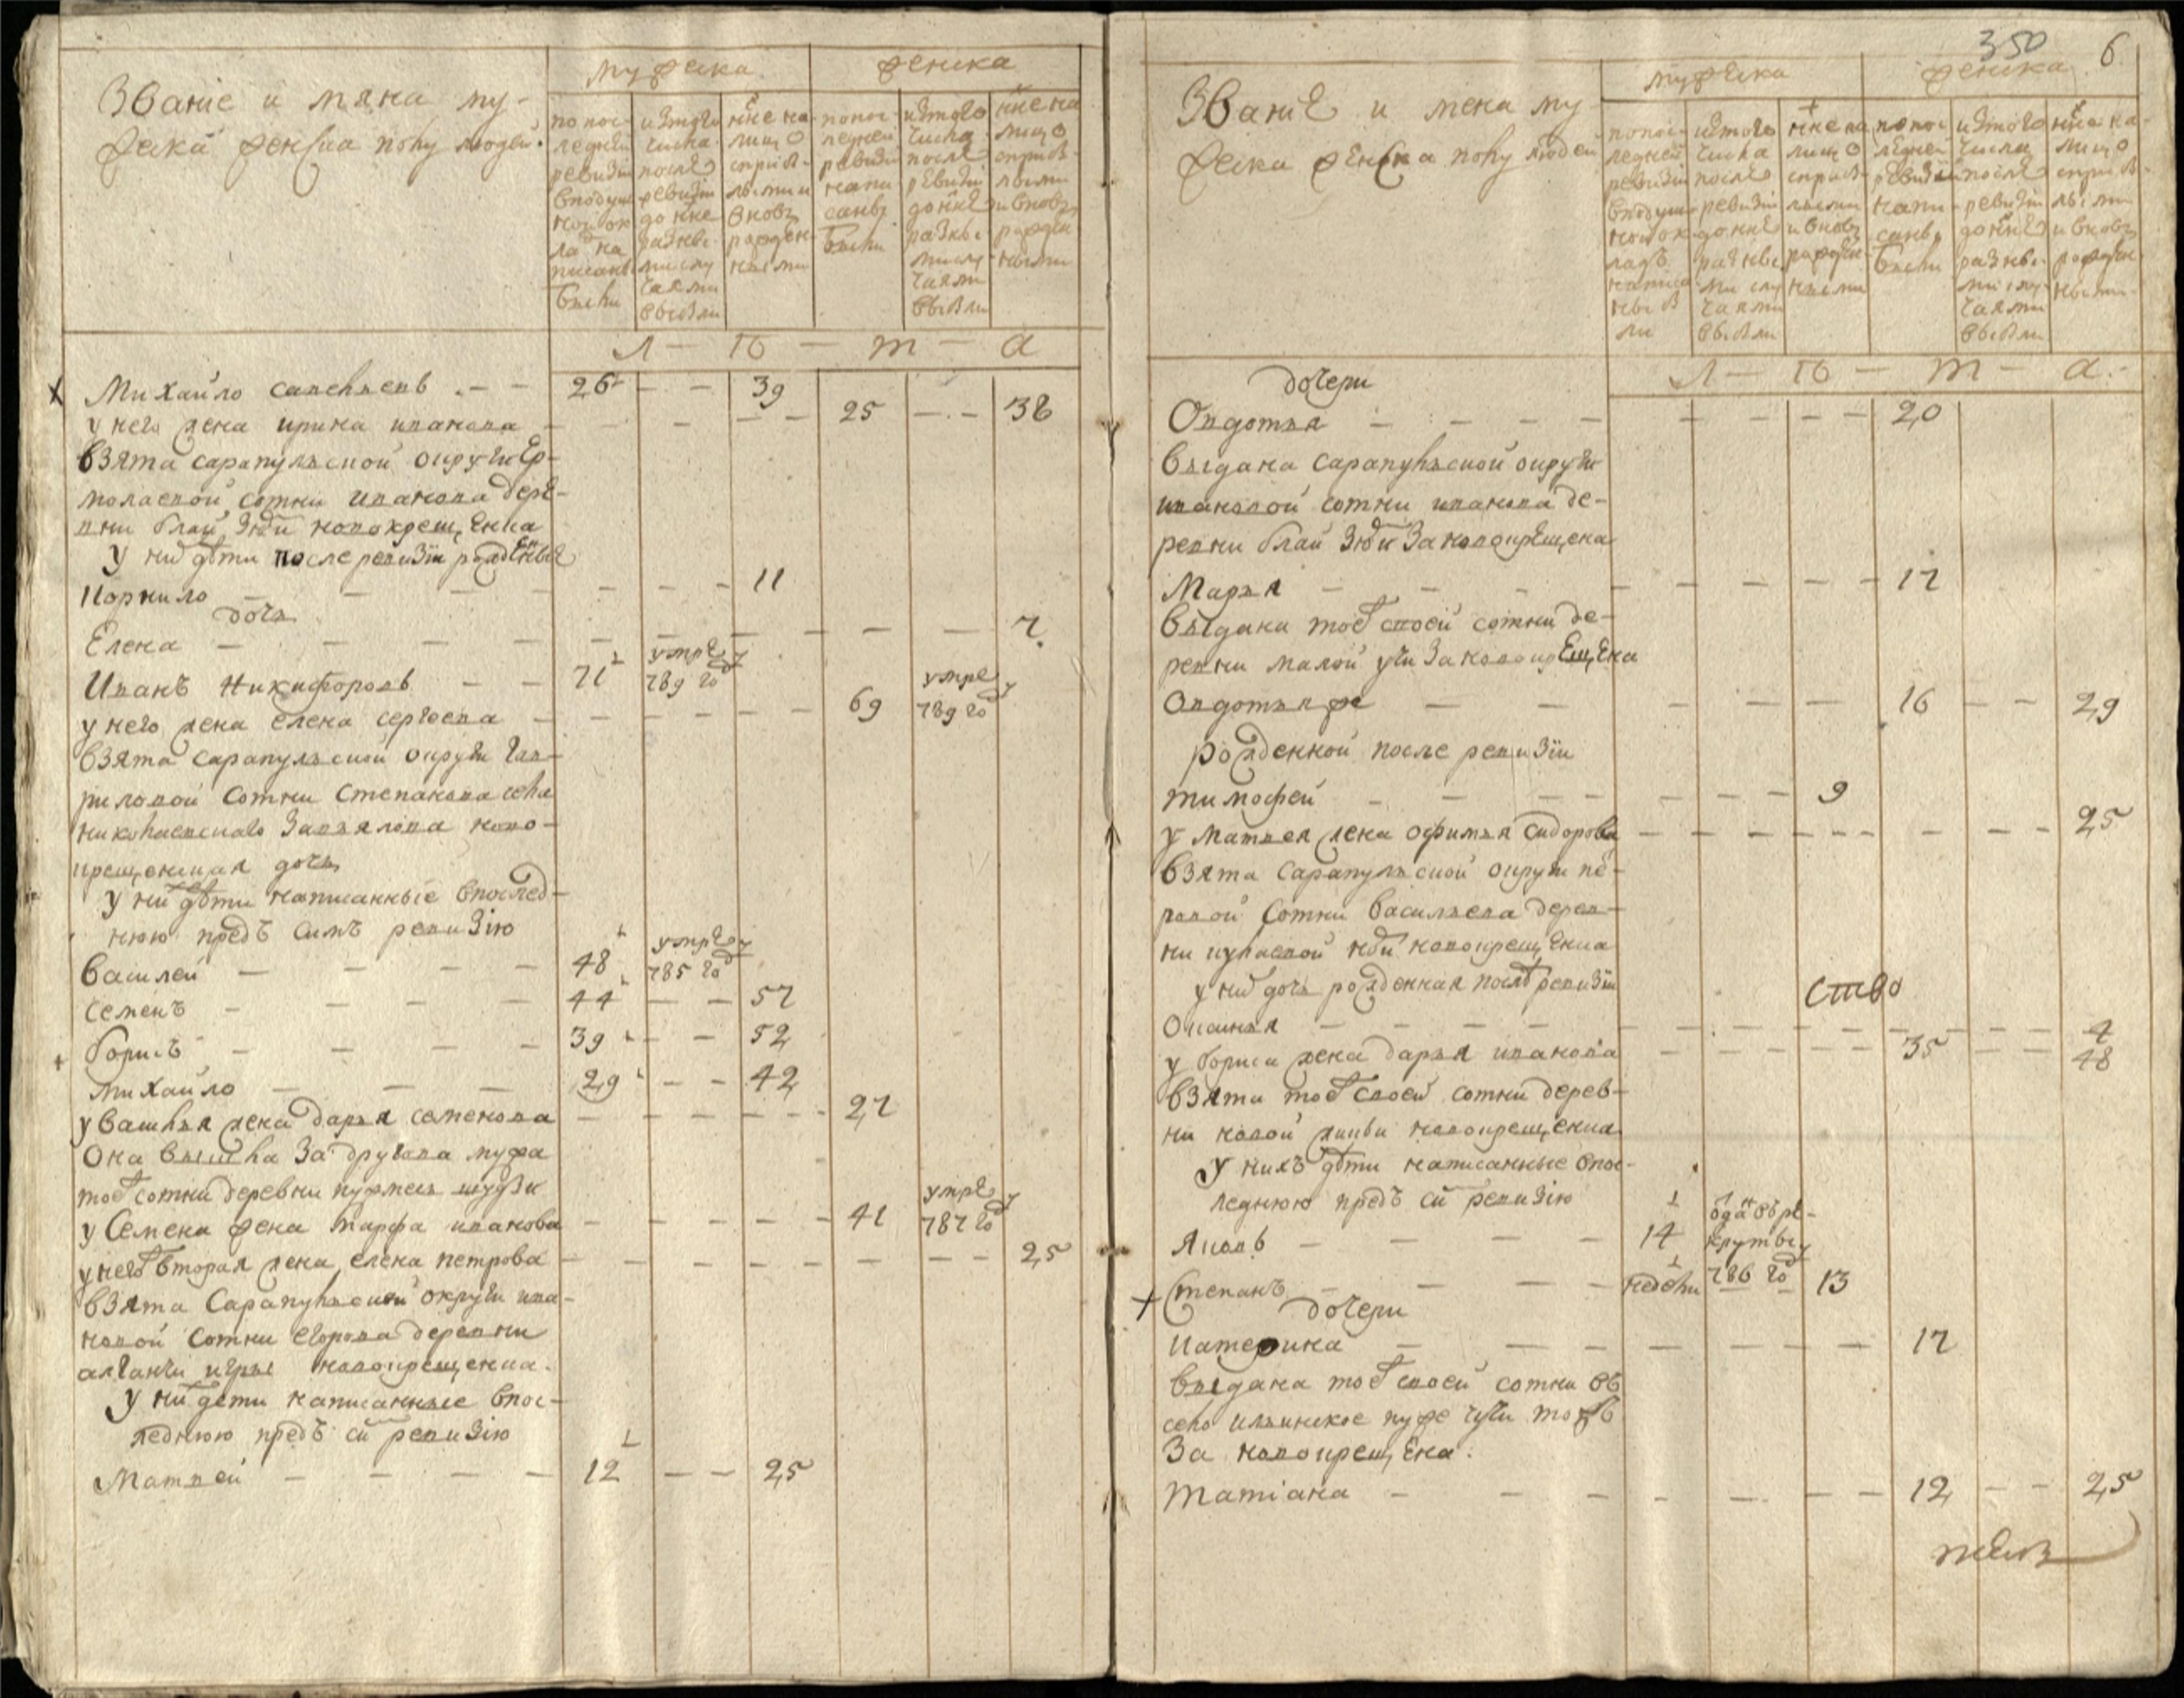 Званіе и мяна му-
жеска женска полу людей.
мужеска
женска
по пос-
ледней
ревизіи
вподуш
ной ок
лад на
писанв
были
изтого
числа
после
ревизіи
до нне
разнвı
ми слу
чаями
выбвли
нне на
лицо
сприбв
лвми и
вновь
рожден
ными
по пос-
ледней
ревизіи
напи
санвı
были
изтого
числа
после
ревизіи
до нне
разнвı
мислу
чаями
выбвли
нне на
лицо
сприбв
лвми
и вновь
рожден
ными
Л — Ѣ — т — а
Михайло савельевъ — — 26 — — 39
у него жена ирина иванова — — — — — 25 — — 38
взята сарапульской округи Ер-
молаевой сотни иванова дере-
вни бгли зюди новокрещенка
у них дѣти после ревизіи рожденные
Корнило — — — — — — 11
дочь
Елена — — — — — — — — 7
Иванъ Никифоровъ — — 71 умре 789 го
у него жена елена сергѣева — — — — — 69 умре 789 го
взята сарапульской округи гав-
риловой сотни степанова села
николаевскаго завьялова ново-
крещенская дочь
у ни дѣти написанные впослед-
нюю предъ симъ ревизію
василеи — — — — 48 умре 785 го
семенъ — — — — 44 — — 57
борисъ — — — — 39 — — 52
михайло — — — 29 — — 42
у василья жена дарья семенова — — — — — 27
она вышла за другова мужа
тоѣ сотни деревни нурмеш шудзи
у Семена жена марфа иванова — — — — — 41 умре 787 го
у него вторая жена елена петрова — — — — — — — 25
взята Сарапульской округи ива-
новой сотни егорова деревни
алганчи игры новокрещенка.
У ни дети написанные впос-
леднюю предъ си ревизію
Матвей — — — — 12 — — 25
350 6
Званіе и мена му
жеска женска полу людей
мужеска
женска
попос
ледней
ревизіи
вподуш
ной ок
ладъ
написа
нвı бв
ли
изтого
числа
после
ревизіи
до нне
разнвı
ми слу
чаями
выбвли
нне на
лицо
сприбв
лвми
и вновь
рожден
ными
по пос
ледней
ревизіи
напи
санвı
были
изтого
числа
после
ревизіи
до нне
разнвı
ми слу
чаями
выбвли
нне на
лицо
сприбв
лвми
и вновь
рожден
ными
Л — Ѣ — т — а.
дочери
Овдотья — — — — — — — — 20
выдана сарапульской округи
ивановой сотни иванова де-
ревни бгли зюди за новокрещена
Марья — — — — — — — 17
выдана тоѣ своей сотни де-
ревни малой учи за новокрещена
Овдотья же — — — — — 16 — — 29
рожденной после ревизіи
тимофей — — — — — — — 9
у Матвея жена офимья сидорова — — — — — — — — 25
взята сарапульской округи пе-
ровой сотни васильева дерев-
ни кулаевой нди новокрещенка
у ни дочь рожденная послѣ ревизіи
ство
Оксинья — — — — — — — — — 4
у бориса жена дарья иванова — — — — — 35 — — 48
взята тоѣ своей сотни дерев-
ни новой жикьи новокрещенка
У нихъ дѣти написанные впос-
леднюю предъ си ревизію
Яковъ — — — — 14 отдан въ ре- круты 786 го
Степанъ — — — — недели — — 13
дочери
Катерина — — — — — — — 17
выдана тоѣ своей сотни въ
село ильинское нуже чучи тожъ
за новокрещена.
Татіана — — — — — — — 12 — — 25